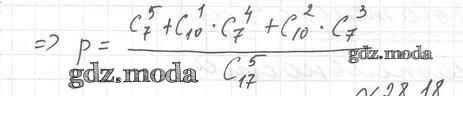 => p = (C_7^5 + C_10^1 · C_7^4 + C_10^2 · C_7^3) / C_17^5
gdz.moda
gdz.moda
28.18